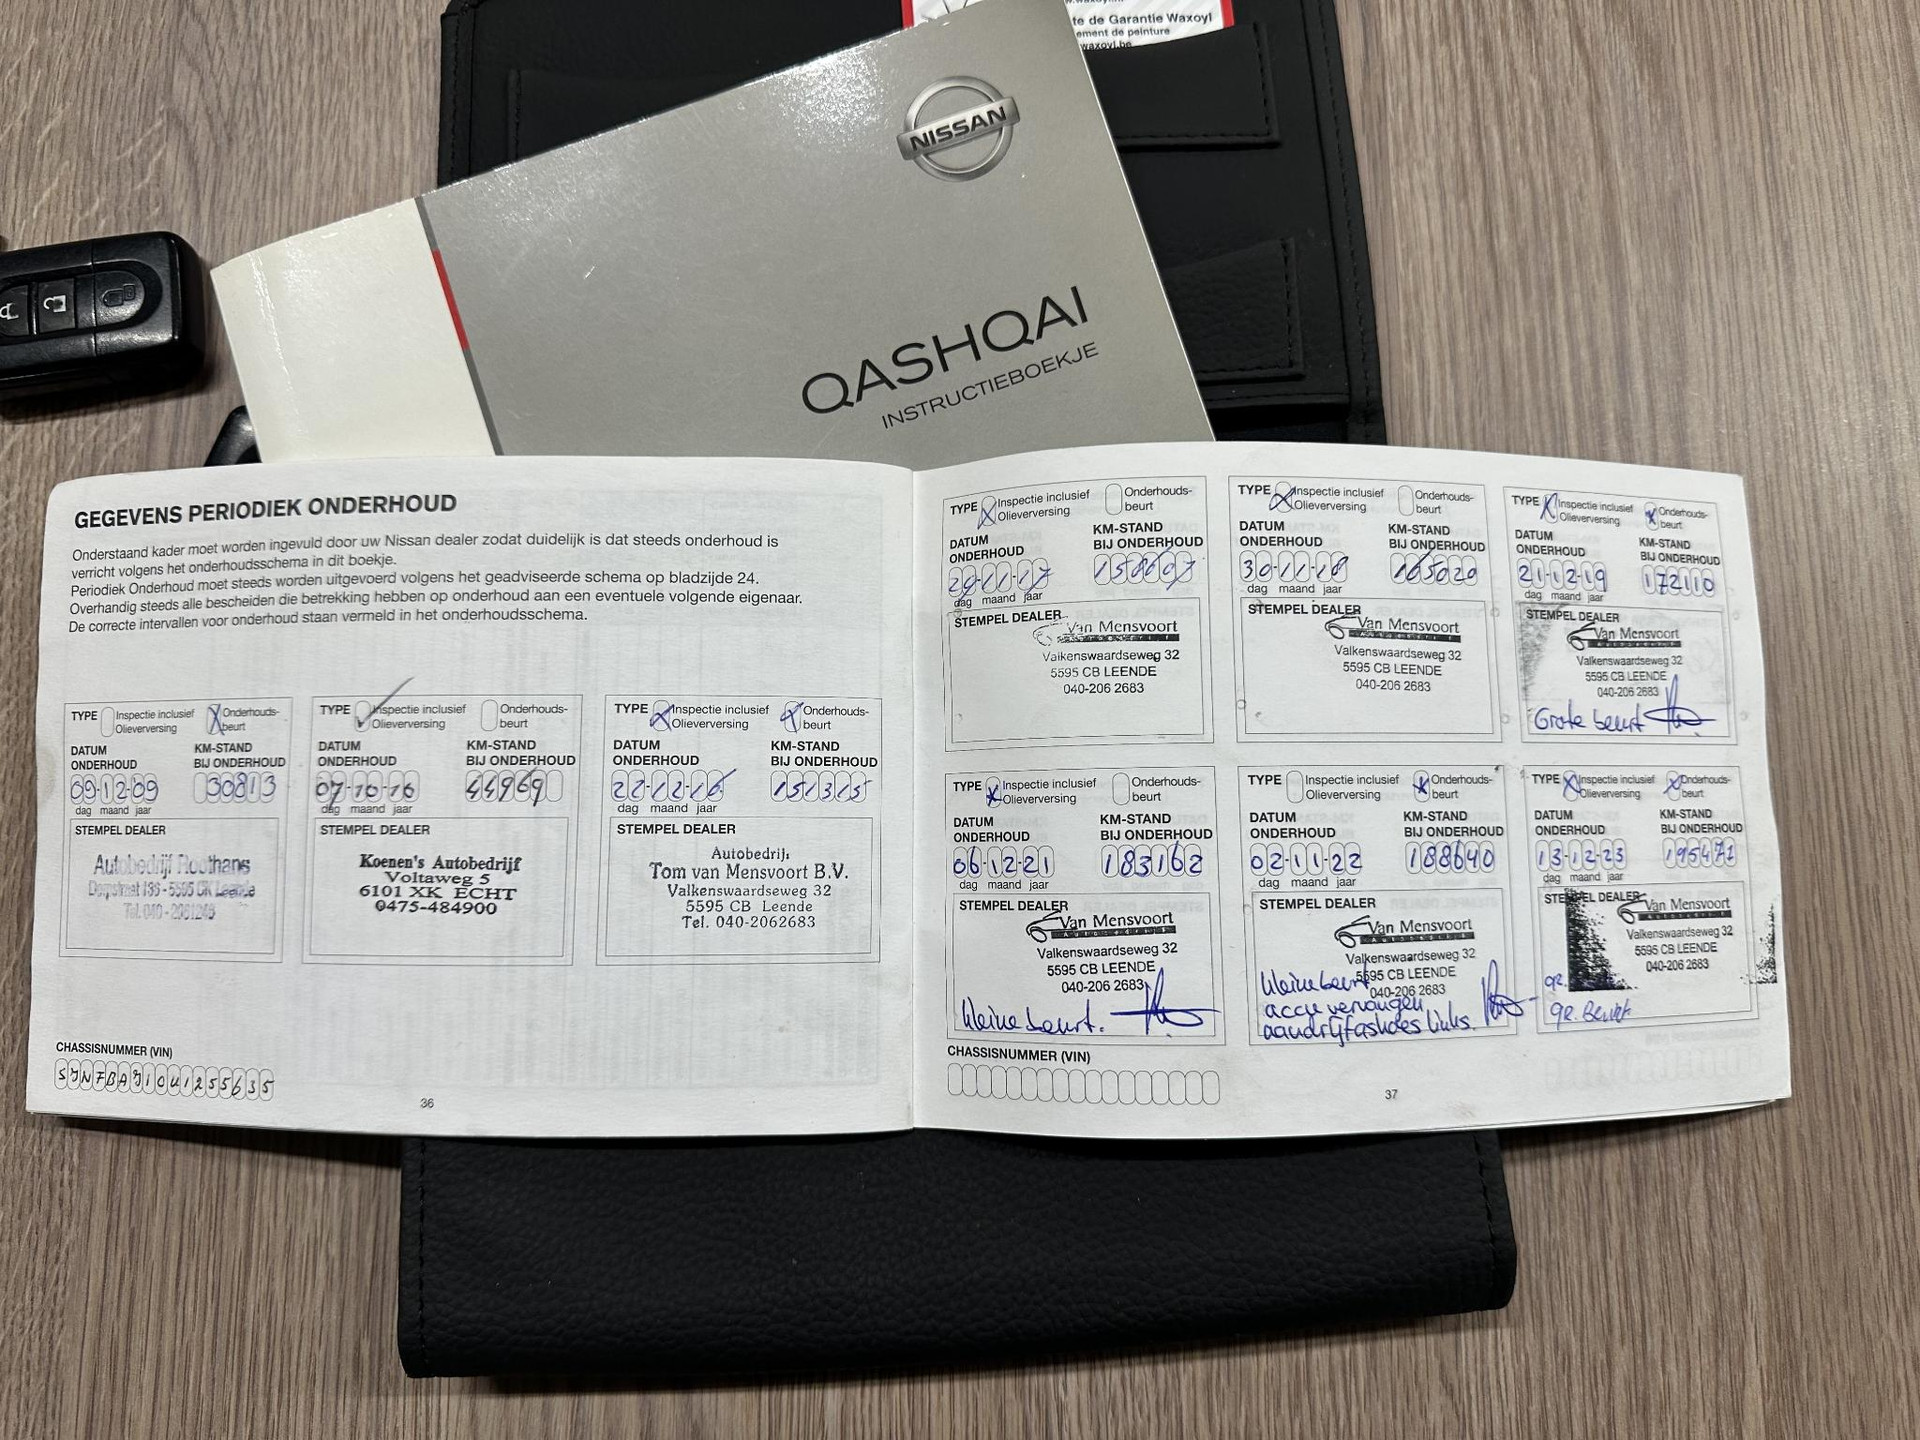 www.waxoyl.
te de Garantie Waxoyl
ement de peinture
waxoyl.be
NISSAN
QASHQAI
INSTRUCTIEBOEKJE
GEGEVENS PERIODIEK ONDERHOUD
Onderstaand kader moet worden ingevuld door uw Nissan dealer zodat duidelijk is dat steeds onderhoud is
verricht volgens het onderhoudsschema in dit boekje.
Periodiek Onderhoud moet steeds worden uitgevoerd volgens het geadviseerde schema op bladzijde 24.
Overhandig steeds alle bescheiden die betrekking hebben op onderhoud aan een eventuele volgende eigenaar.
De correcte intervallen voor onderhoud staan vermeld in het onderhoudsschema.
TYPE Inspectie inclusief Olieverversing X Onderhouds-beurt
DATUM ONDERHOUD
KM-STAND BIJ ONDERHOUD
09-12-09 30813
dag maand jaar
STEMPEL DEALER
Autobedrijf Roothans
Dorpstraat 136 - 5595 CK Leende
Tel. 040 - 2061249
TYPE Inspectie inclusief Olieverversing Onderhouds-beurt
DATUM ONDERHOUD
KM-STAND BIJ ONDERHOUD
07-10-10 44969
dag maand jaar
STEMPEL DEALER
Koenen's Autobedrijf
Voltaweg 5
6101 XK ECHT
0475-484900
TYPE X Inspectie inclusief Olieverversing X Onderhouds-beurt
DATUM ONDERHOUD
KM-STAND BIJ ONDERHOUD
22-12-16 151315
dag maand jaar
STEMPEL DEALER
Autobedrij:
Tom van Mensvoort B.V.
Valkenswaardseweg 32
5595 CB Leende
Tel. 040-2062683
CHASSISNUMMER (VIN)
SJNFBAJ10U1255635
36
TYPE X Inspectie inclusief Olieverversing Onderhouds-beurt
DATUM ONDERHOUD
KM-STAND BIJ ONDERHOUD
-11-17 158607
dag maand jaar
STEMPEL DEALER
Van Mensvoort
Valkenswaardseweg 32
5595 CB LEENDE
040-206 2683
TYPE X Inspectie inclusief Olieverversing Onderhouds-beurt
DATUM ONDERHOUD
KM-STAND BIJ ONDERHOUD
30-11-18 165020
dag maand jaar
STEMPEL DEALER
Van Mensvoort
Valkenswaardseweg 32
5595 CB LEENDE
040-206 2683
TYPE X Inspectie inclusief Olieverversing X Onderhouds-beurt
DATUM ONDERHOUD
KM-STAND BIJ ONDERHOUD
21-12-19 172110
dag maand jaar
STEMPEL DEALER
Van Mensvoort
Valkenswaardseweg 32
5595 CB LEENDE
040-206 2683
Grote beurt
TYPE X Inspectie inclusief Olieverversing Onderhouds-beurt
DATUM ONDERHOUD
KM-STAND BIJ ONDERHOUD
06-12-21 183162
dag maand jaar
STEMPEL DEALER
Van Mensvoort
Autobedrijf
Valkenswaardseweg 32
5595 CB LEENDE
040-206 2683
kleine beurt.
TYPE Inspectie inclusief Olieverversing X Onderhouds-beurt
DATUM ONDERHOUD
KM-STAND BIJ ONDERHOUD
02-11-22 188640
dag maand jaar
STEMPEL DEALER
Van Mensvoort
Autobedrijf
Valkenswaardseweg 32
5595 CB LEENDE
040-206 2683
kleine beurt
accu vervangen
aandrijfashoes links.
TYPE X Inspectie inclusief Olieverversing X Onderhouds-beurt
DATUM ONDERHOUD
KM-STAND BIJ ONDERHOUD
13-12-23 195471
dag maand jaar
STEMPEL DEALER
Van Mensvoort
Autobedrijf
Valkenswaardseweg 32
5595 CB LEENDE
040-206 2683
gr.
gr. Beurt
CHASSISNUMMER (VIN)
37